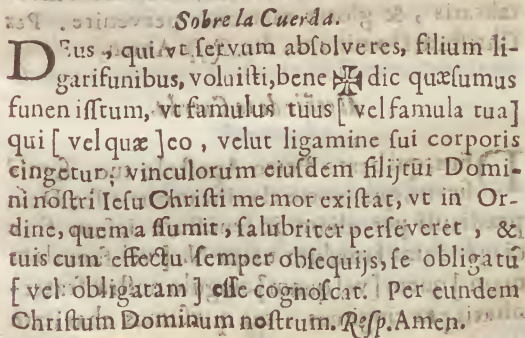 Sobre la Cuerda.
DEus, qui vt ſervum abſolveres, filium li-
garifunibus, voluiſti, bene ✠ dic quæſumus
funen iſſtum, vt famulus tuus [ vel famula tua]
qui [ vel quæ ] eo, velut ligamine ſui corporis
cingetur, vinculorum eiuſdem filij tui Domi-
ni noſtri Ieſu Chriſti me mor exiſtat, vt in Or-
dine, quem a ſſumit, ſalubriter perſeveret, &
tuis cum effectu ſemper obſequijs, ſe obligatũ
[ vel obligatam ] eſſe cognoſcat. Per eundem
Chriſtum Dominum noſtrum. Reſp. Amen.